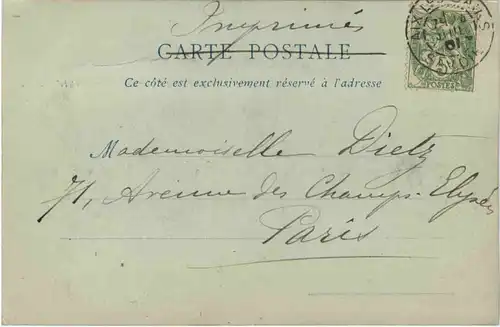 Imprimés
CARTE POSTALE
Ce côté est exclusivement réservé à l'adresse
Mademoiselle Dietz
71, Avenue des Champs-Elysées
Paris
AIX-LES-BAINS
01
SAVOIE
POSTES